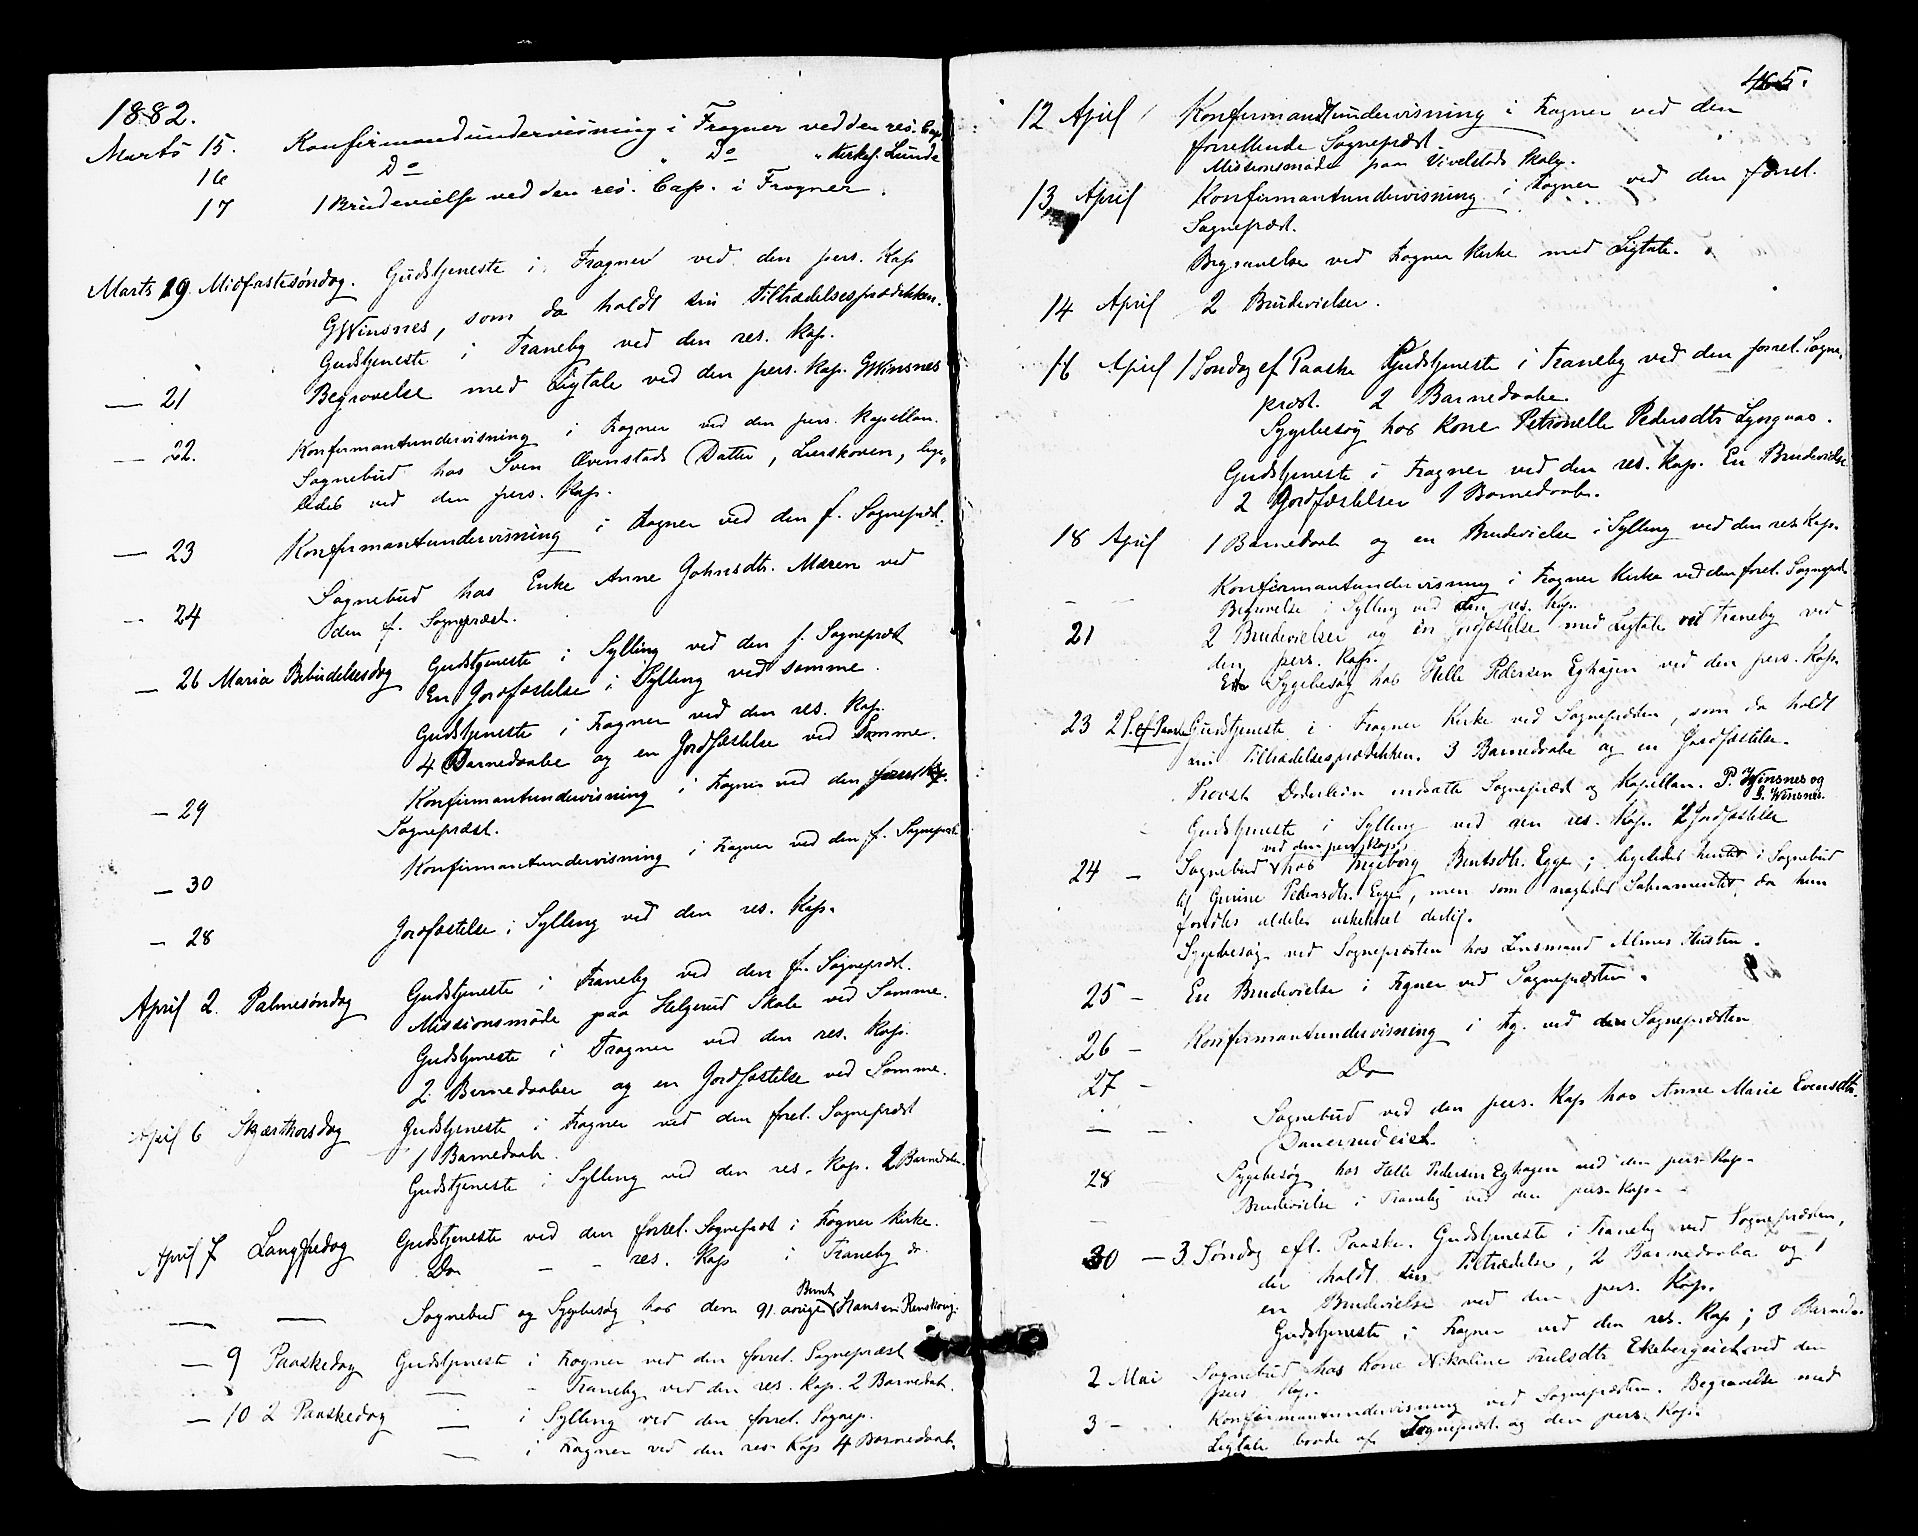 1882.
Marts 15. Konfirmandundervisning i Frogner ved den res. Cap.
16 Do " Do " Kirkes. Lunde
17 1 Brudevielse ved den res. Cap. i Frogner.
Marts 19. Midfastesøndag. Gudstjeneste i Frogner ved den pers. Kap
GWinsnes, som da holdt sin Tiltrædelsesprædikken.
Gudstjeneste i Traneby ved den res. Kap.
— 21 Begravelse med Ligtale ved den pers. Kap. GWinsnes
— 22. Konfirmantundervisning i Frogner ved den pers. Kapellan.
Sognebud hos Sven Ovenstads Datter, Lierskoven, lige-
ledes ved den pers. Kap.
— 23 Konfirmantundervisning i Frogner ved den f. Sognepræst.
— 24 Sognebud hos Enke Anne Johnsdtr. Mæren ved
den f. Sognepræst.
— 26 Maria Bebudelsesdag Gudstjeneste i Sylling ved den f. Sognepræst
En Jordfæstelse i Sylling ved samme.
Gudstjeneste i Frogner ved den res. Kap.
4 Barnedaabe og en Jordfæstelse ved Samme.
— 29 Konfirmantundervisning i Frogner ved den
Sognepræst.
— 30 Konfirmantundervisning i Frogner ved den f. Sognepræst
— 28 Jordfæstelse i Sylling ved den res. Kap.
April 2. Palmesøndag Gudstjeneste i Traneby ved den f. Sognepræst.
Missionsmøde paa Helgerud Skole ved Samme.
Gudstjeneste i Frogner ved den res. Kap.
2 Barnedaaber og en Jordfæstelse ved Samme.
April 6 Skjærthorsdag Gudstjeneste i Frogner ved den foret. Sognepræst
1 Barnedaab.
Gudstjeneste i Sylling ved den res. Kap. 2 Barnedaab.
April 7 Langfredag Gudstjeneste ved den forret. Sognepræst i Frogner Kirke.
Do — — res. Kap i Traneby do.
Bernt
— — Sognebud og Sygebesøg hos den 91 aarige Hansen
— 9 Paaskedag Gudstjeneste i Frogner ved den forret. Sognepræst
— - Traneby ved den res. Kap. 2 Barnedaab.
— 10 2 Paaskedag — i Sylling ved den forret. Sognep.
— i Frogner ved den res Kap 4 Barnedaab.
465.
12 April Konfirmantundervisning i Frogner ved den
forrettende Sognepræst.
Missionsmøde paa Vivelstads Skole.
13 April Konfirmantundervisning i Frogner ved den forret.
Sognepræst.
Begravelse ved Frogner Kirke med Ligtale.
14 April 2 Brudevielser.
16 April 1 Søndag ef Paaske Gudstjeneste i Traneby ved den forret. Sogne-
præst. 2 Barnedaabe
Sygebesøg hos Kone Petronelle Pedersdtr
Gudstjeneste i Frogner ved den res. Kap. En Brudevielse
2 Jordfæstelser 1 Barnedaab.
18 April 1 Barnedaab og en Brudevielse i Sylling ved den res Kap.
— — Konfirmantundervisning i Frogner Kirke ved den foret. Sognepræst
Begravelse i Sylling ved den res. Kap.
21 2 Brudevielser og en Jordfæstelse med Ligtale ved Traneby ved
den pers. Kap.
Sygebesøg hos Helle Pedersen Eghagen ved den pers. Kap.
23 2 S. ef Paaske Gudstjeneste i Frogner Kirke ved Sognepræsten, som da holdt
sin Tiltrædelsesprædikken. 3 Barnedaabe og en Jordfæstelse.
Provst indsatte Sognepræst og Kapellan. P. Winsnes og
G. Winsnes.
Gudstjeneste i Sylling ved den res. Kap. 2 Jordfæstelse
ved den pers. Kap.
24 — Sognebud hos Ingeborg Berntsdtr. Egge; ligeledes hentet i Sognebud
af Gunine Pedersdtr. Egge, men som nægtedes Sakramentet, da hun
fandtes aldeles uskikket dertil.
Sygebesøg ved Sognepræsten hos Lensmand
25 — En Brudevielse i Frogner ved Sognepræsten.
26 — Konfirmantundervisning i Frg. ved den Sognepræsten
27 — Do
— — Sognebud ved den pers. Kap hos Anne Marie Evensdtr.
28 Sygebesøg hos Helle Pedersen Eghagen ved den pers. Kap.
— — Brudevielse i Traneby ved den pers. Kap.
30 — 3. Søndag eft. Paaske. Gudstjeneste i Traneby ved Sognepræsten,
der holdt sin Tiltrædelse, 2 Barnedaaba og 1
en Brudevielse ved den pers. Kap.
Gudstjeneste i Frogner ved den res. Kap; 3 Barned.
2 Mai Sognebud hos Kone Nikoline Trulsdtr. Ekebergeiet ved den
pers Kap.
3 — Konfirmantundervisning ved Sognepræsten. Begravelse med
Ligtale baade af Sognepræst og den pers. Kap.